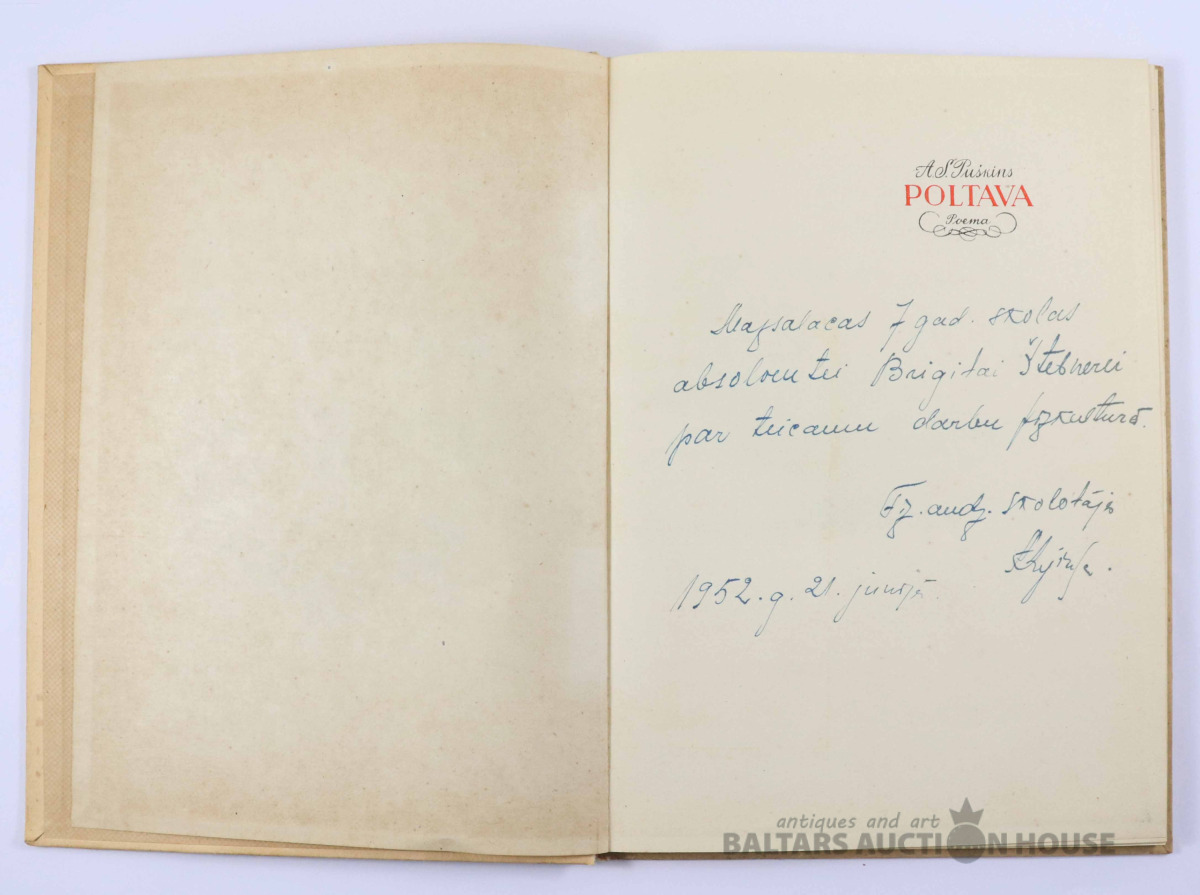 A.S.Puškins
POLTAVA
Poema
Mazsalacas 7 gad. skolas
absolventei Brigitai Štebnerei
par teicamu darbu fizkulturā.
Fiz. audz. skolotājs
1952. g. 21. junijā
antiques and art
BALTARS AUCTION HOUSE